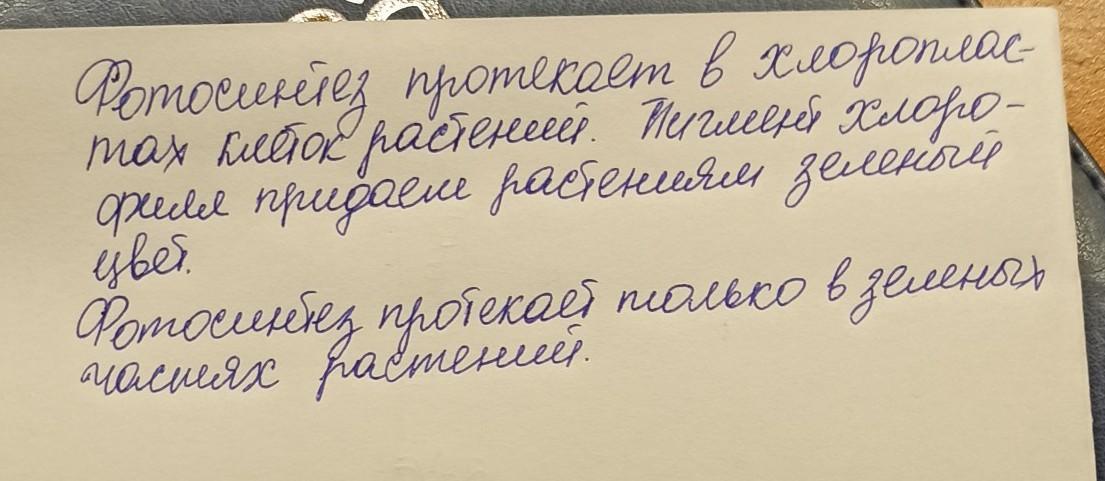 Фотосинтез протекает в хлороплас-
тах клеток растений. Пигмент хлоро-
филл придаем растениям зеленый
цвет.
Фотосинтез протекает только в зеленых
частях растений.